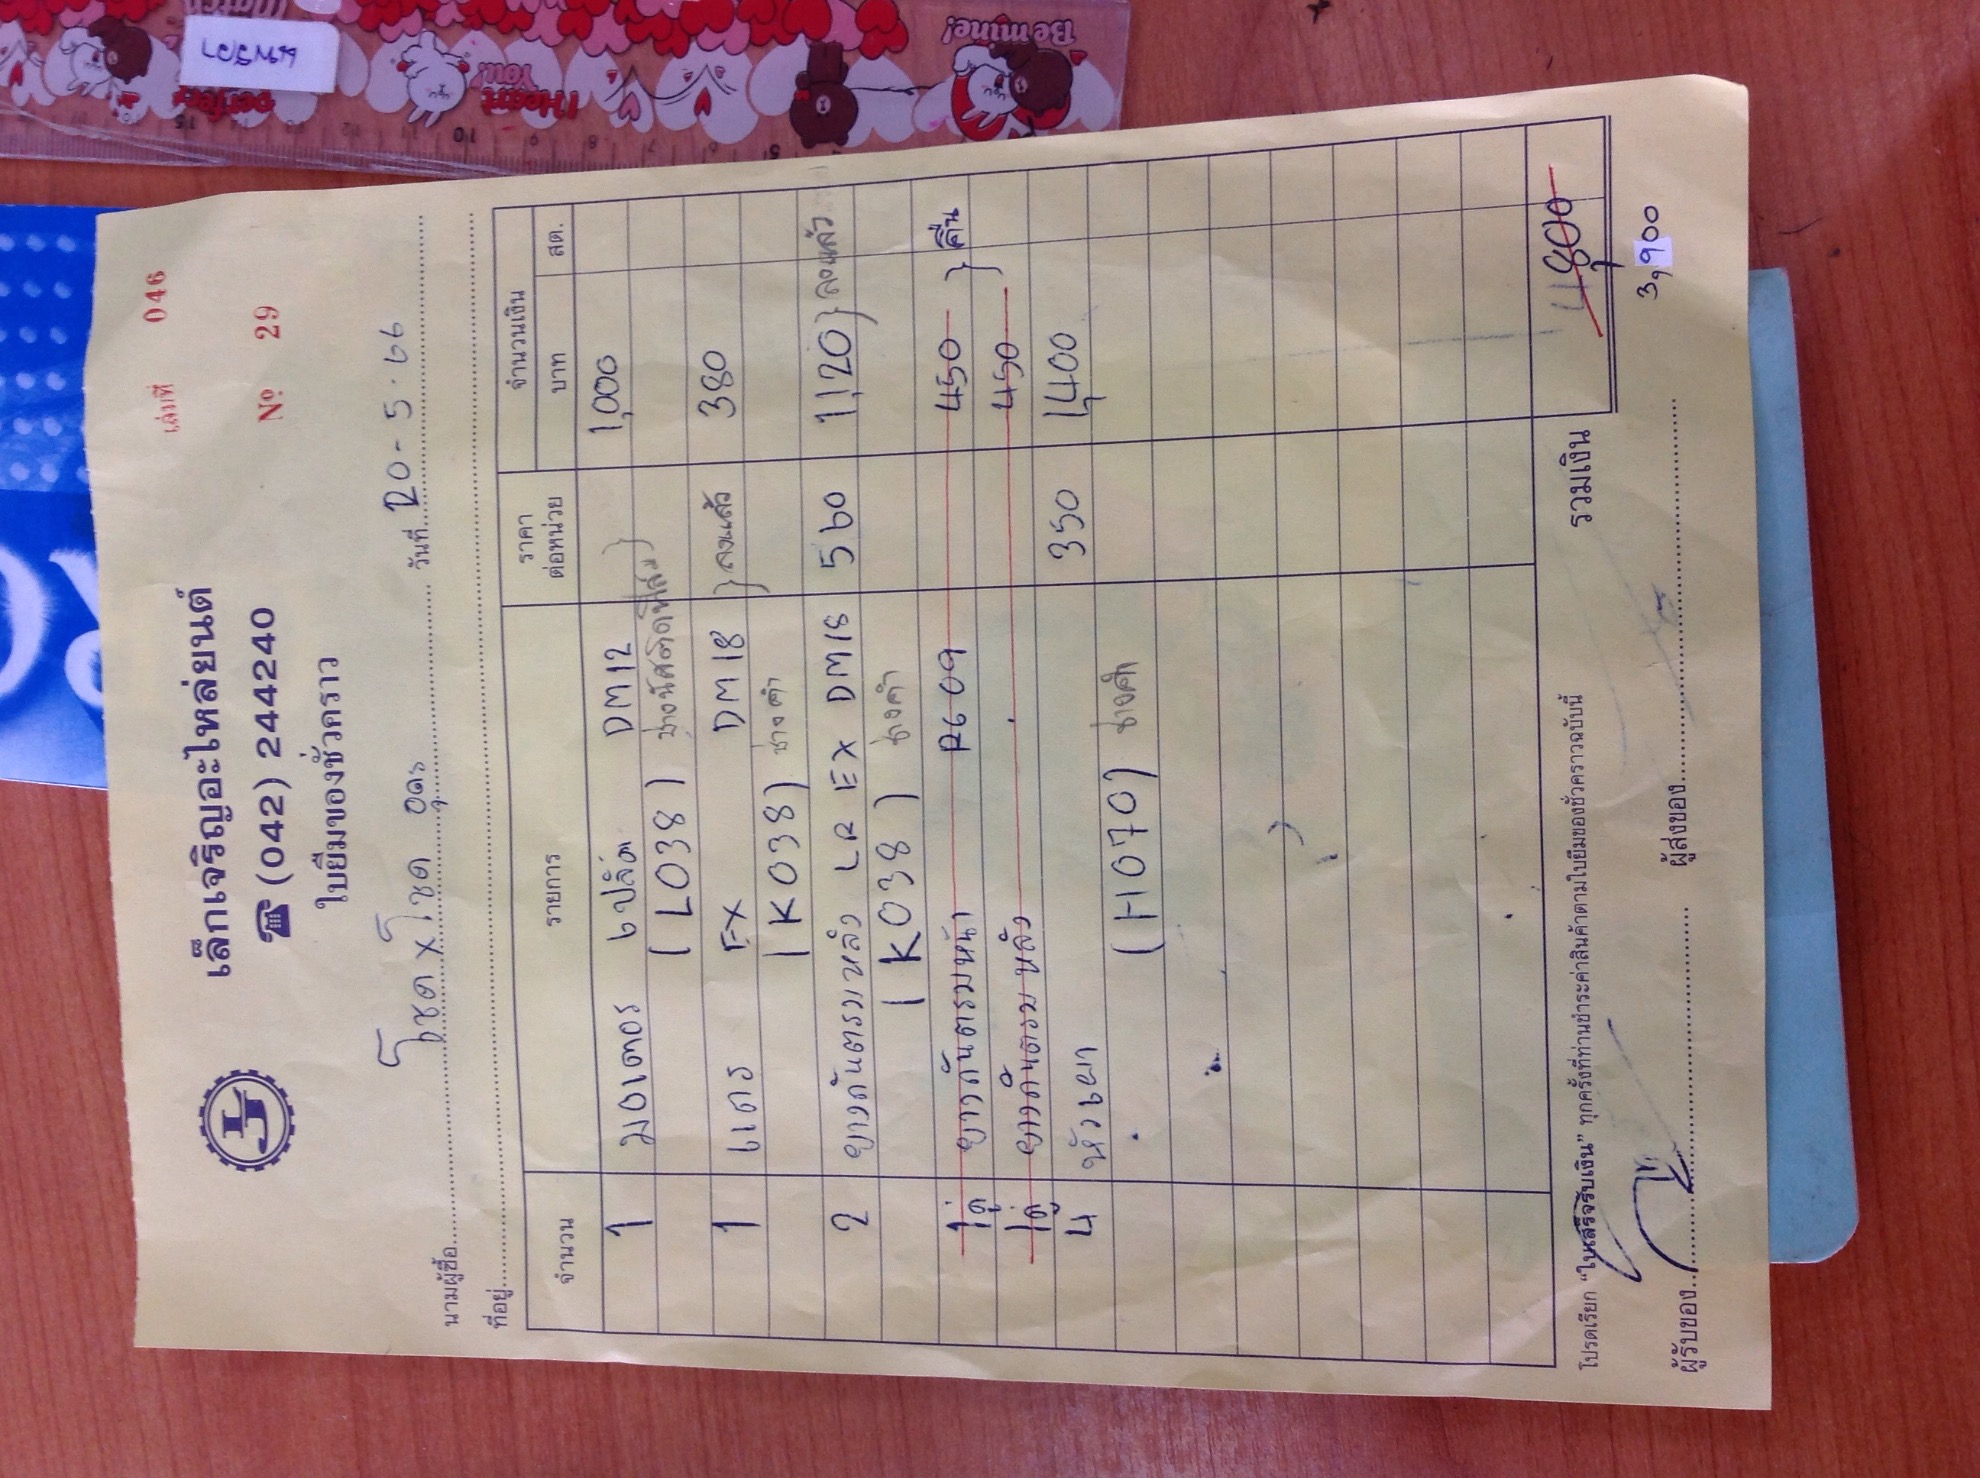 เล่มที่ 046
เล็กเจริญอะไหล่ยนต์
☎ (042) 244240
№ 29
ใบยืมของชั่วคราว
นามผู้ซื้อ โชค x โชค อุดร วันที่ 20-5-66
ที่อยู่
จำนวน รายการ ราคาต่อหน่วย จำนวนเงิน
บาท สต.
1 มอเตอร์ 6 ปลั๊ก DM12 1,000
(L038)
1 แตร EX DM18 } ลงแล้ว 380
(K038) ช่างคำ
2 ยางกันตรมหลัง LR EX DM18 560 1,120 } ลงแล้ว
(K038) ช่างคำ
1คู่ ยางกันตรมหน้า R609 450 } คืน
1คู่ ยางกันตรมหลัง 450
4 หัวเผา 350 1,400
(H070) ช่างคำ
รวมเงิน 4,800
3,900
โปรดเรียก “ใบเสร็จรับเงิน” ทุกครั้งที่ท่านชำระค่าสินค้าตามใบยืมของชั่วคราวฉบับนี้
ผู้รับของ ผู้ส่งของ
Be mine!
I Heart You!
perfect
match